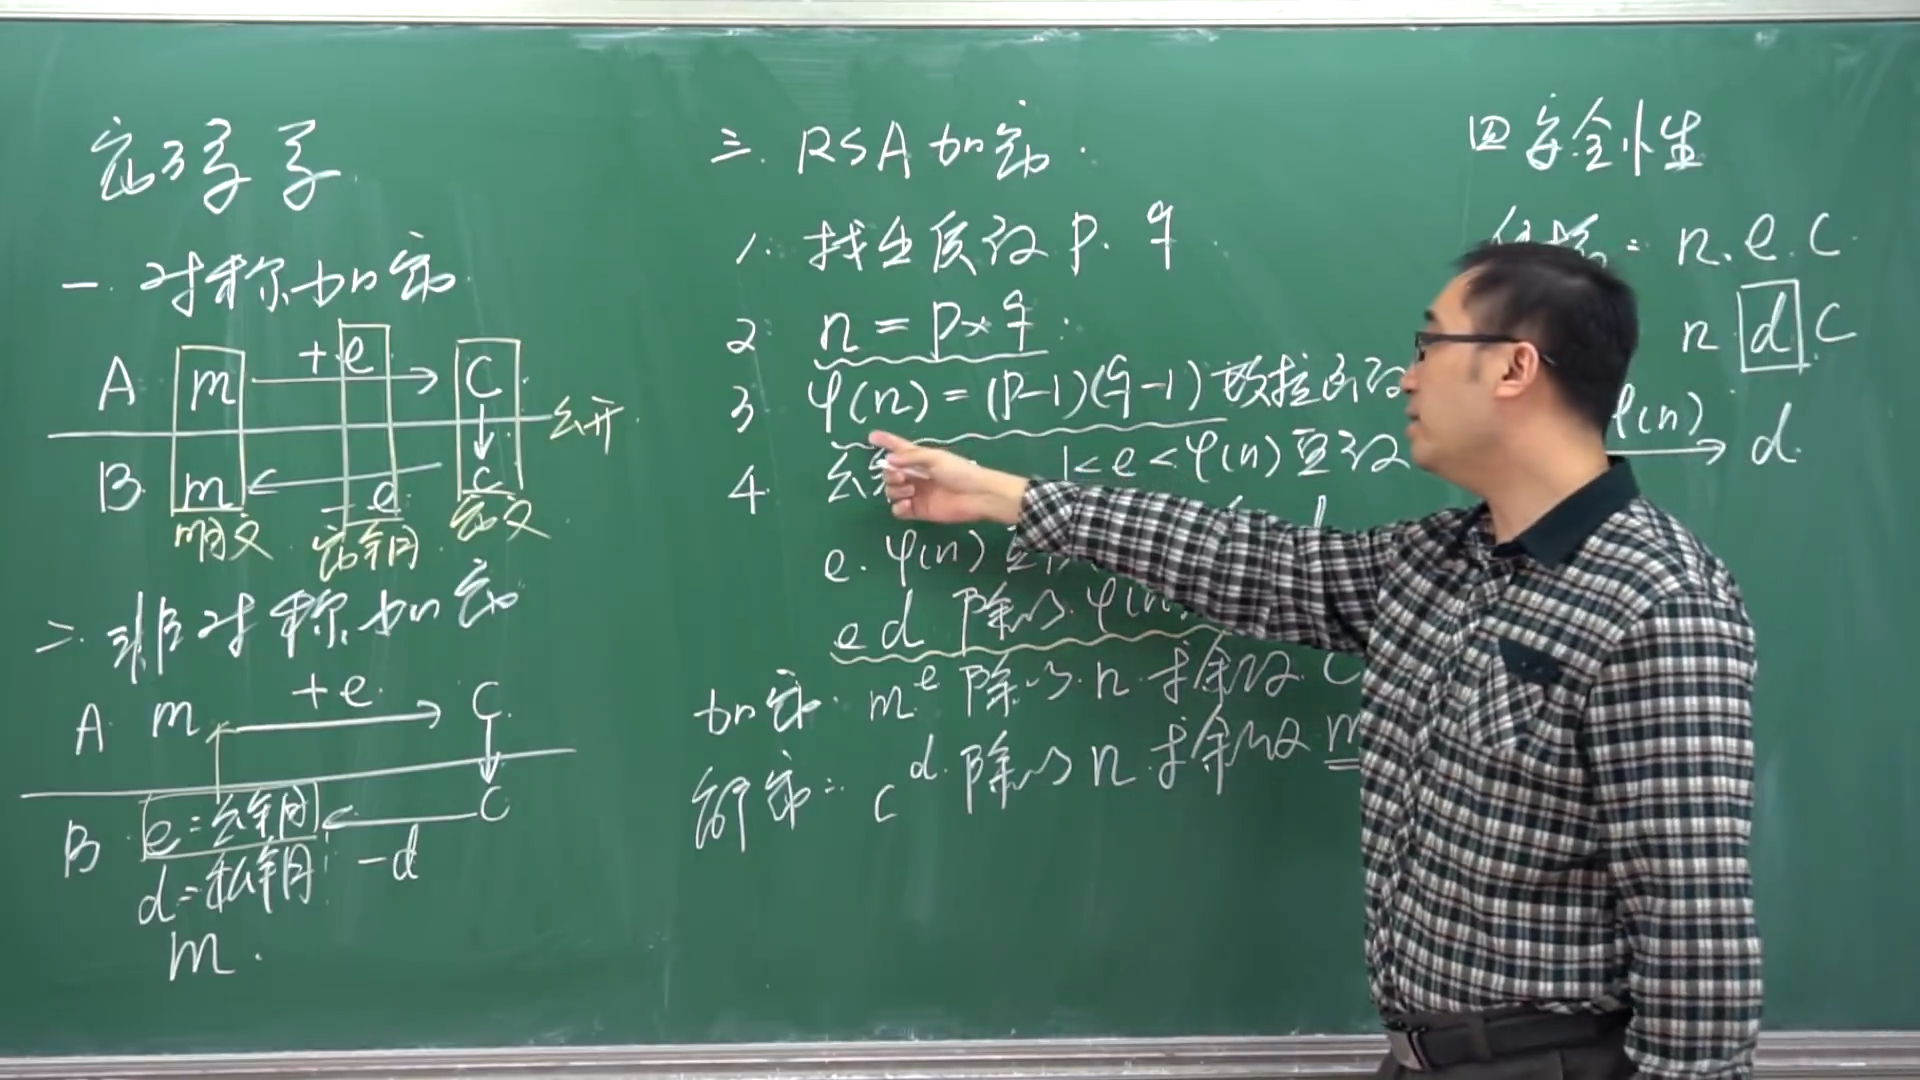 密码学
一 对称加密
A m +e C
公开
B m - e c
明文 密钥 密文
二 非对称加密
A m +e C
B e=公钥 C
d=私钥 -d
m
三 RSA加密
1. 找出质数 p. q
2 n = p×q
3 φ(n) = (p-1)(q-1) 欧拉函数
4 公 1<e<φ(n) 互
e. φ(n) 互
ed 除以 φ(n)
加密: m^e 除以 n 求余数 C
解密: c^d 除以 n 求余数 m
四 安全性
: n. e. c
n d c
φ(n) → d